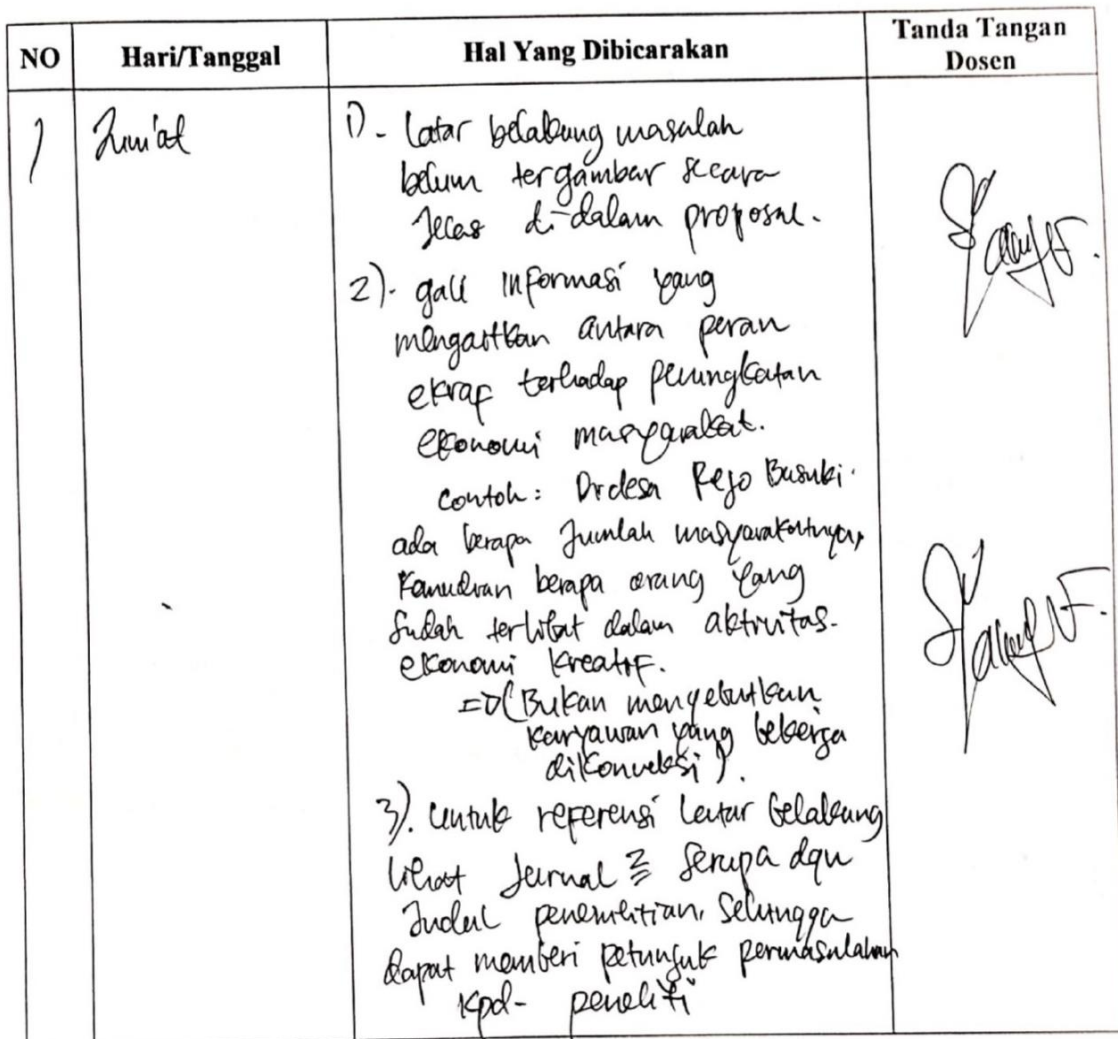 NO
Hari/Tanggal
Hal Yang Dibicarakan
Tanda Tangan
Dosen
1
Jum'at
1) - Latar belakang masalah
belum tergambar secara
Jelas di-dalam proposal.
2). gali informasi yang
mengaitkan antara peran
ekraf terhadap peningkatan
ekonomi masyarakat.
contoh: Didesa Rejo Basuki.
ada berapa Jumlah masyarakatnya,
Kemudian berapa orang yang
Sudah terlibat dalam aktivitas-
ekonomi kreatif.
=D (Bukan menyebutkan
karyawan yang bekerja
dikonveksi).
3). untuk referensi Latar belakang
lihat Jurnal 2 Serupa dgn
Judul penenelitian, Sehingga
dapat memberi petunjuk permasalahan
kpd- peneliti